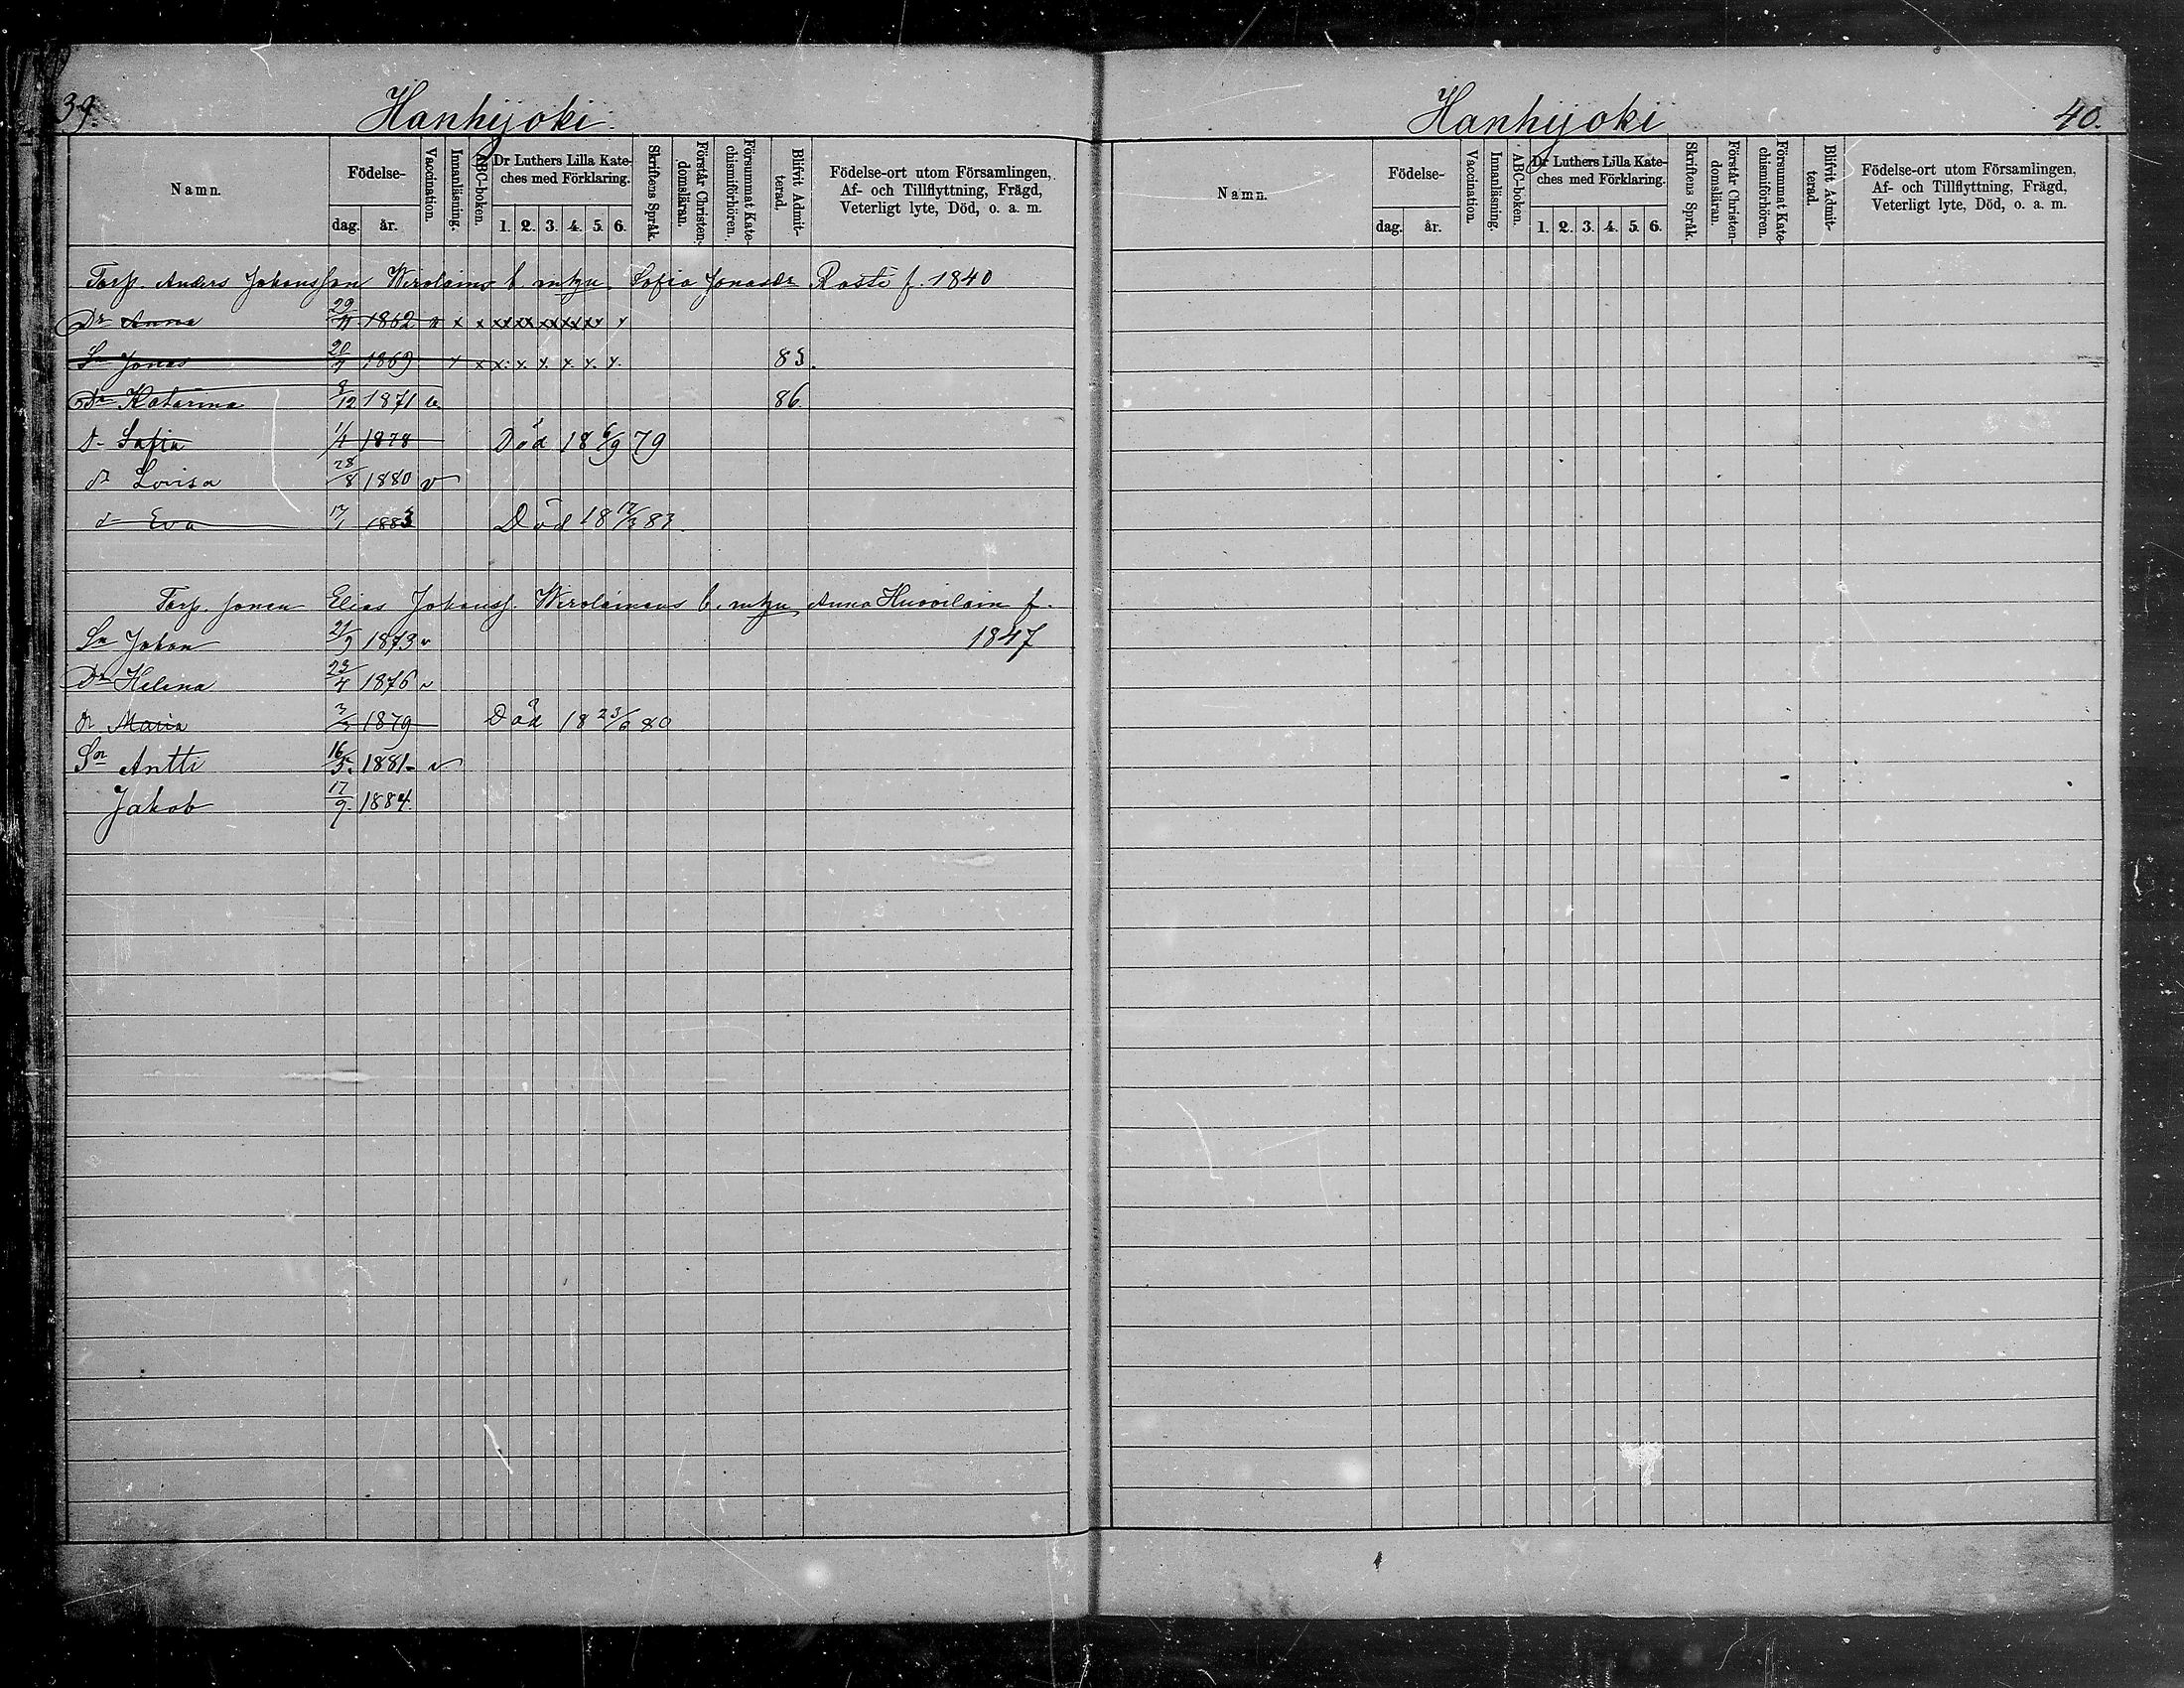 39.
Hanhijoki.
Namn.
Födelse-
dag. år.
Vaccination.
Innanläsning.
ABC-boken.
Dr Luthers Lilla Kate-
ches med Förklaring.
1. 2. 3. 4. 5. 6.
Skriftens Språk.
Förstår Christen-
domsläran.
Försummat Kate-
chismiförhören.
Blifvit Admit-
terad.
Födelse-ort utom Församlingen,
Af- och Tillflyttning, Frägd,
Veterligt lyte, Död, o. a. m.
Torp. Anders Johansson Wirolains b. m hu Sofia Jonasdr Rosti f. 1840
Dr Anna 29/11 1862 x x x xx xx xx xx xx x
Sn Jonas 1869 x x x. x. x. x. x. x. 85.
Dr Katarina 8/12 1871 v. 86.
dr Sofia 1/4 1878 Död 18 6/9 79
dr Lovisa 28/8 1880 v
dr Eva 17/1 1883 Död 18 12/3 83.
Torp. sonen Elias Johanss. Wirolainens b. m hu Anna Huovilain f.
1847
Sn Johan 21/9 1873 v
Dr Helena 23/4 1876 v
dr Maria 1879 Död 18 23/6 80
Sn Antti 16/5. 1881. v
Jakob 17/9. 1884.
Hanhijoki
40.
Namn.
Födelse-
dag. år.
Vaccination.
Innanläsning.
ABC-boken.
Dr Luthers Lilla Kate-
ches med Förklaring.
1. 2. 3. 4. 5. 6.
Skriftens Språk.
Förstår Christen-
domsläran.
Försummat Kate-
chismiförhören.
Blifvit Admit-
terad.
Födelse-ort utom Församlingen,
Af- och Tillflyttning, Frägd,
Veterligt lyte, Död, o. a. m.